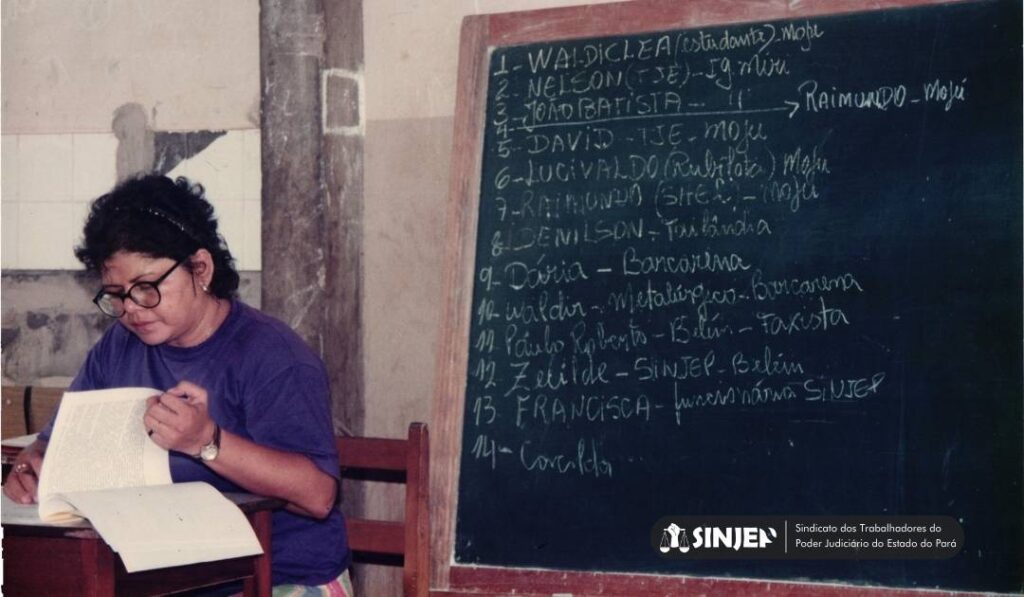 1 - WALDICLEA (estudante) - Moju
2 - NELSON (TJE) - Ig Miri
3 - JOÃO BATISTA - " → RAIMUNDO - Mojú
4 -
5 - DAVID - TJE - Moju
6 - LUCIVALDO Moju
7 - RAIMUNDA - Moju
8 DENILSON - Tailândia
9 - Dária - Barcarena
10 - Waldir - Metalúrgico - Barcarena
11 Paulo Roberto - Belém - Taxista
12 Zetilde - SINJEP - Belém
13 FRANCISCA - funcionária SINJEP
14 -
SINJEP
Sindicato dos Trabalhadores do
Poder Judiciário do Estado do Pará